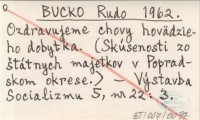 BUCKO Rudo 1962.
Ozdravujeme chovy hovädzie-
ho dobytka. (Skúsenosti zo
štátnych majetkov v Poprad-
skom okrese.) Výstavba
Socializmu 5, nr 22: 3.
BT/007/0092